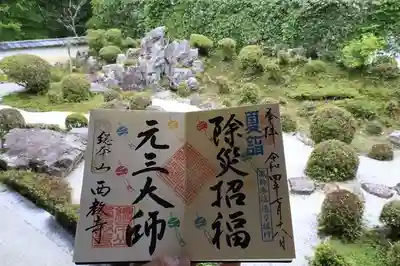 奉拝 令和四年七月八日
夏詣
除災招福
元三大師
総本山 西教寺